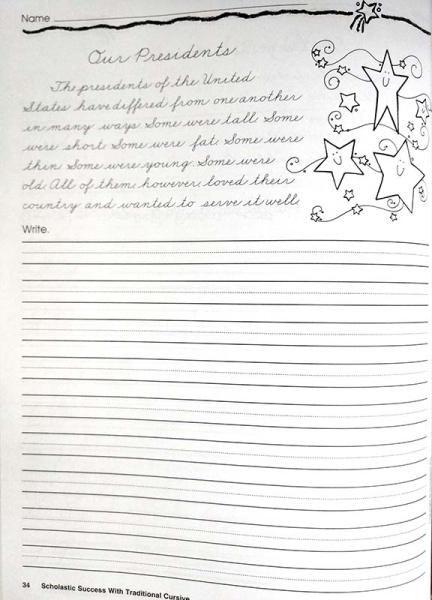 Name
Our Presidents
The presidents of the United
States have differed from one another
in many ways. Some were tall. Some
were short. Some were fat. Some were
thin. Some were young. Some were
old. All of them, however, loved their
country and wanted to serve it well.
Write.
34 Scholastic Success With Traditional Cursive